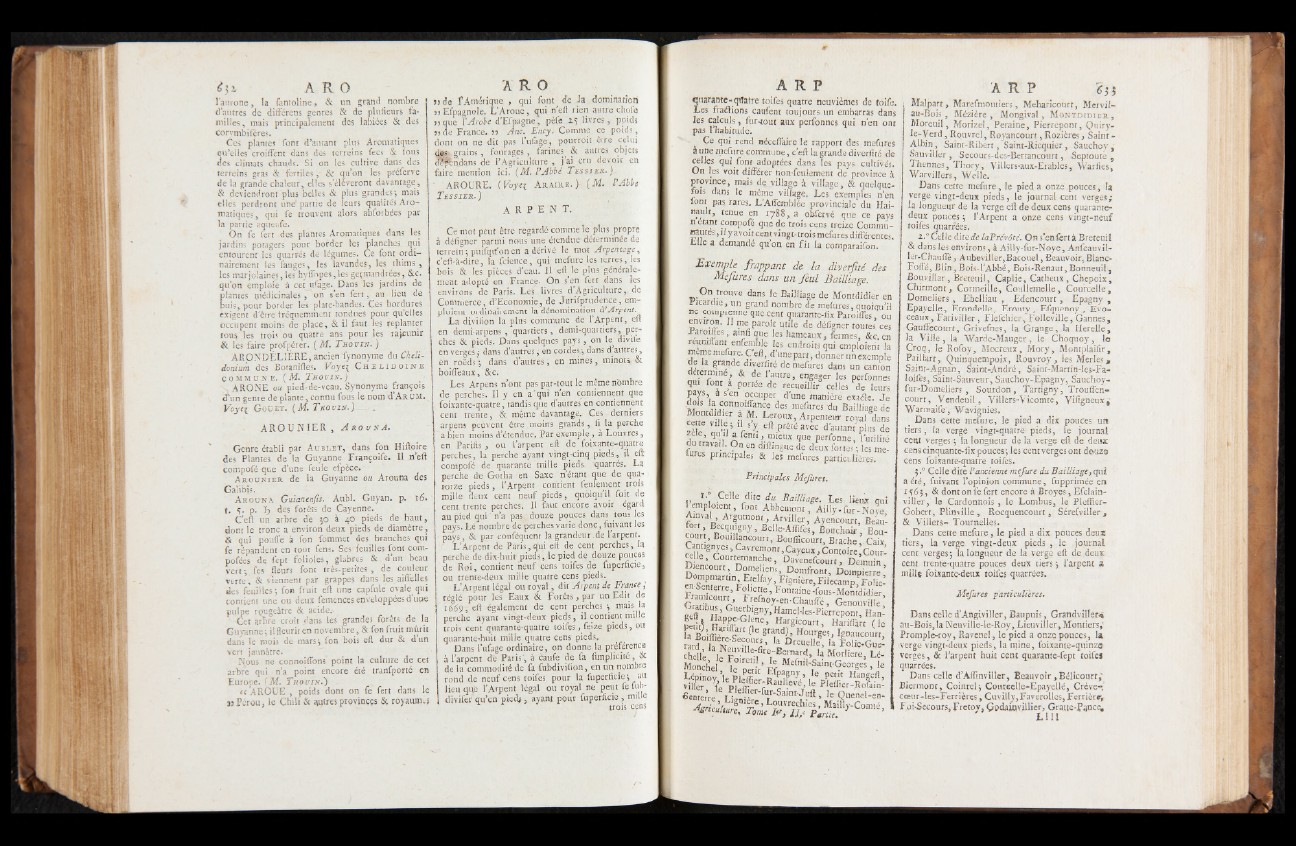 632 ARO
l'aurone, la santoline, & un grand nombre
d'autres de différens genres & de plusieurs fa-
milles, mais principalement des labiées & des
corymbifères.
Ces plantes sont d'autant plus Aromatiques
qu'elles croissent dans des terreins secs & sous
des climats chauds. Si on les cultive dans des
terreins gras & fertiles, & qu'on les préserve
de la grande chaleur, elles s'éleveront davantage,
& deviendront plus belles & plus grandes; mais
elles perdront une partie de leurs qualités Aro-
matiques, qui se trouvent alors absorbées par
la partie aqueuse.
On se sert des plantes Aromatiques dans les
jardins potagers pour border les planches qui
entourent les quarrés de légumes. Ce sont ordi-
nairement les sauges, les lavandes, les thims,
les marjolaines, les hyssopes, les germandrées, &c.
qu'on emploie à cet usage. Dans les jardins de
plantes médicinales, on s'en sert, au lieu de
buis, pour border les plate-bandes. Ces bordures
exigent d'être fréquemment tondues pour qu'elles
occupent moins de place, & il faut les replanter
tous les trois ou quatre ans pour les rajeunir
& les faire prospérer. (M. THOUIN.)
ARONDELIERE, ancien synonyme du Cheli-
donium des Botanistes. Voyez CHELIDOINE
COMMUNE. (M. THOUIN.)
ARONE ou pied-de-veau. Synonyme françois
d'un genre de plante, connu sous le nom d'ARUM.
Voyez GOUET. (M. THOUIN.)
AROUNIER, AROUNA.
Genre établi par AUBLET, dans son Histoire
des Plantes de la Guyanne Françoise. Il n'est
composé que d'une seule espèce.
AROUNIER de la Guyanne ou Arouna des
Galibis.
AROUNA Guianensis. Aubl. Guyan. p. 16.
t. 5. p. ♄ des forêts de Cayenne.
C'est un arbre de 30 à 40 pieds de haut,
dont le tronc a environ deux pieds de diamètre,
& qui pousse à son sommet des branches qui
se répandent en tout sens. Ses feuilles sont com-
posées de sept folioles, glabres & d'un beau
vert; ses fleurs sont très-petites, de couleur
verte, & viennent par grappes dans les aisselles
des feuilles; son fruit est une capsule ovale qui
contient une ou deux semences enveloppées d'une
pulpe rougeâtre & acide.
Cet arbre croît dans les grandes forêts de la
Guyanne; il fleurit en novembre, & son fruit mûrit
dans le mois de mars; son bois est dur & d'un
vert jaunâtre.
Nous ne connoissons point la culture de cet
arbre qui n'a point encore été transporté en
Europe. (M. THOUIN.)
« AROUE, poids dont on se sert dans le
» Pérou, le Chili & autres provinces & royaumes
ARO
» de l'Amérique, qui sont de la domination
» Espagnole. L'Aroue, qui n'est rien autre chose
» que l'Arobe d'Espagne, pèse 25 livres, poids
» de France. » Anc. Ency. Comme ce poids,
dont on ne dit pas l'usage, pourroit être celui
des grains, fourages, farines & autres objets
dépendans de l'Agriculture, j'ai cru devoir en
faire mention ici. (M. l'Abbé TESSIER.)
AROURE. (Voyez ARAIRE.) (M. l'Abbé
TESSIER.)
ARPENT.
Ce mot peut être regardé comme le plus propre
à désigner parmi nous une étendue déterminée de
terrein; puisqu'on en a dérivé le mot Arpentage,
c'est-à-dire, la science, qui mesure les terres, les
bois & les pièces d'eau. Il est le plus générale-
ment adopté en France. On s'en sert dans les
environs de Paris. Les livres d'Agriculture, de
Commerce, d'Economie, de Jurisprudence, em-
ploient ordinairement la dénomination d'Arpent.
La division la plus commune de l'Arpent, est
en demi-arpens, quartiers, demi-quartiers, per-
ches & pieds. Dans quelques pays, on le divise
en verges; dans d'autres, en cordes, dans d'autres,
en roëds; dans d'autres, en mines, minots &
boisseaux, &c.
Les Arpens n'ont pas par-tout le même nombre
de perches. Il y en a qui n'en contiennent que
soixante-quatre, tandis que d'autres en contiennent
cent trente, & même davantage. Ces derniers
arpens peuvent être moins grands, si la perche
a bien moins d'étendue. Par exemple, à Louvres,
en Parisis, ou l'arpent est de soixante-quatre
perches, la perche ayant vingt-cinq pieds, il est
composé de quarante mille pieds quarrés. La
perche de Gotha en Saxe n'étant que de qua-
torze pieds, l'Arpent contient seulement trois
mille deux cent neuf pieds, quoiqu'il soit de
cent trente perches. Il faut encore avoir égard
au pied qui n'a pas douze pouces dans tous les
pays. Le nombre de perches varie donc, suivant les
pays, & par conséquent la grandeur de l'arpent.
L'Arpent de Paris, qui est de cent perches, la
perche de dix-huit pieds, le pied de douze pouces
de Roi, contient neuf cens toises de superficie,
ou trente-deux mille quatre cens pieds.
L'Arpent légal ou royal, dit Arpent de France,
réglé pour les Eaux & Forêts, par un Edit de
1669, est également de cent perches; mais la
perche ayant vingt-deux pieds, il contient mille
trois cent quarante-quatre toises, seize pieds, ou
quarante-huit mille quatre cens pieds.
Dans l'usage ordinaire, on donne la préférence
à l'arpent de Paris, à cause de sa simplicité, &
de la commodité de sa subdivision, en un nombre
rond de neuf cens toises pour la superficie; au
lieu que l'Arpent légal ou royal ne peut se sub-
diviser qu'en pieds, ayant pour superficie, mille
trois cens
ARP
quarante-quatre toises quatre neuvièmes de toise.
Les fractions causent toujours un embarras dans
les calculs, sur-tout aux personnes qui n'en ont
pas l'habitude.
Ce qui rend nécessaire le rapport des mesures
à une mesure commune, c'est la grande diversité de
celles qui sont adoptées dans les pays cultivés.
On les voit différer non-seulement de province à
province, mais de village à village, & quelque-
fois dans le même village. Les exemples n'en
sont pas rares. L'Assemblée provinciale du Hai-
nault, tenue en 1788, a observé que ce pays
n'étant composé que de trois cens treize Commu-
nautés, il y avoit cent vingt-trois mesures différentes.
Elle a demandé qu'on en fit la comparaison.
Exemple frappant de la diversité des
Mesures dans un seul Bailliage.
On trouve dans le Bailliage de Montdidier en
Picardie, un grand nombre de mesures, quoiqu'il
ne comprenne que cent quarante-six Paroisses, ou
environ. Il me parole utile de désigner toutes ces
Paroisses, ainsi que les hameaux, fermes, &c. en
réunissant ensemble les endroits qui emploient la
même mesure. C'est, d'une part, donner un exemple
de la grande diversité de mesures dans un canton
déterminé, & de l'autre, engager les personnes
qui sont à portée de recueillir celles de leurs
pays, à s'en occuper d'une manière exacte. Je
dois la connoissance des mesures du Bailliage de
Montdidier à M. Leroux, Arpenteur royal dans
cette ville; il s'y est prêté avec d'autant plus de
zèle, qu'il a senti, mieux que personne, l'utilité
du travail. On en distingue de deux sortes; les me-
sures principales & les mesures particulières.
Principales Mesures.
1.° Celle dite du Bailliage. Les lieux qui
l'emploient, sont Abbemont, Ailly-sur-Noye,
Ainval, Argumont, Arviller, Ayencourt, Beau-
fort, Becquigny, Belle-Assises, Bouchoir, Bou-
court, Bouillancourt, Boussicourt, Brache, Caix,
Cantignyes, Cavremont, Cayeux, Contoire, Cour-
celle, Courtemanche, Davenescourt, Demuin,
Diencourt, Domeliens, Domfront, Dompierre,
Dompmartin, Etelfay, Fignière, Filecamp, Folie-
en-Senterre, Foliette, Fontaine-sous-Montdidier,
Framicourt, Fresnoy-en-Chaussé, Genouville,
Gratibus, Guerbigny, Hamel-les-Pierrepont, Han-
gest, Happe-Glenc, Hargicourt, Harissart (le
petit), Harissart (le grand), Hourges, Ignaucourt,
la Boissière-Secours, la Dreuelle, la Folie-Gue-
rard, la Neuville-sire-Bernard, la Morlière, Lé-
chelle, le Foireuil, le Mesnil-Saint-Georges, le
Monchel, le petit Espagny, le petit Hangest,
Lépinoy, le Plessier-Raulleve, le Plessier-Rosain-
viller, le Plessier-sur-Saint-Just, le Quesnel-en-
Senterre, Lignière, Louvrechies, Mailly-Comé,
Agriculture. Tome Ier, II.e Partie.
ARP 633
Malpart, Maresmoutiers, Meharicourt, Mervil-
au-Bois, Mézière, Mongival, MONTDIDIER,
Moreuil, Morizel, Peraine, Pierrepont, Quiry-
le-Verd, Rouvrel, Royancourt, Rozières, Saint-
Albin, Saint-Ribert, Saint-Ricquier, Sauchoy,
Sauviller, Secours-des-Bertancourt, Septoute,
Thennes, Thory, Villers-aux-Erables, Warsies,
Warvillers, Welle.
Dans cette mesure, le pied a onze pouces, la
verge vingt-deux pieds, le journal cent verges;
la longueur de la verge est de deux cens quarante-
deux pouces; l'Arpent a onze cens vingt-neuf
toises quarrées.
2.° Celle dite de la Prévôté. On s'en sert à Breteuil
& dans les environs, à Ailly-sur-Noye, Anseauvil-
ler-Chaussé, Aubeviller, Bacouel, Beauvoir, Blanc-
Fossé, Blin, Bois-l'Abbé, Bois-Renaut, Bonneuil,
Bouviller, Breteuil, Caplie, Catheux, Chepoix,
Chirmont, Cormeille, Coullemelle, Courcelle,
Domeliers, Ebeillau, Edencourt, Epagny,
Epayelle, Erondelle, Esquennoy, Evo-
ceaux, Fariviller, Fleschier, Folleville, Gannes,
Gauffecourt, Grivesnes, la Grange, la Herelle,
la Ville, la Warde-Mauger, le Choquoy, le
Crocq, le Rosoy, Mocreux, Mory, Montplaisir,
Paillart, Quinquempoix, Rouvroy, les Merles,
Saint-Agnan, Saint-André, Saint-Martin-les-Fa-
loises, Saint-Sauveur, Sauchoy-Epagny, Sauchoy-
sur-Domeliers, Sourdon, Tartigny, Troussen-
court, Vendeuil, Villers-Vicomte, Visigneux,
Warmaise, Wavignies.
Dans cette mesure, le pied a dix pouces un
tiers, la verge vingt-quatre pieds, le journal
cent verges; la longueur de la verge est de deux
cens cinquante-six pouces; les cent verges ont douze
cens soixante-quatre toises.
3.° Celle dite l'ancienne mesure du Bailliage, qui
a été, suivant l'opinion commune, supprimée en
1563, & dont on se sert encore à Broyes, Esclain-
viller, la Cardonnois, le Lombus, le Plessier-
Gobert, Plinville, Rocquencourt, Séresviller,
& Villers-Tournelles.
Dans cette mesure, le pied a dix pouces deux
tiers, la verge vingt-deux pieds, le journal
cent verges; la longueur de la verge est de deux
cent trente-quatre pouces deux tiers; l'arpent a
mille soixante-deux toises quarrées.
Mesures particulières.
Dans celle d'Angiviller, Baupuis, Grandviller-
au-Bois, la Neuville-le-Roy, Lieuviller, Montiers,
Promple-roy, Ravenel, le pied a onze pouces, la
verge vingt-deux pieds, la mine, soixante-quinze
verges, & l'arpent huit cent quarante-sept toises
quarrées.
Dans celle d'Assinviller, Beauvoir, Bélicourt,
Biermont, Cointrel, Courcelle-Epayelle, Créve-
cœur-les-Ferrières, Cuvilly, Faverolles, Ferrière,
Fui-Secours, Fretoy, Godainvillier, Gratte-Pance,
L l l l